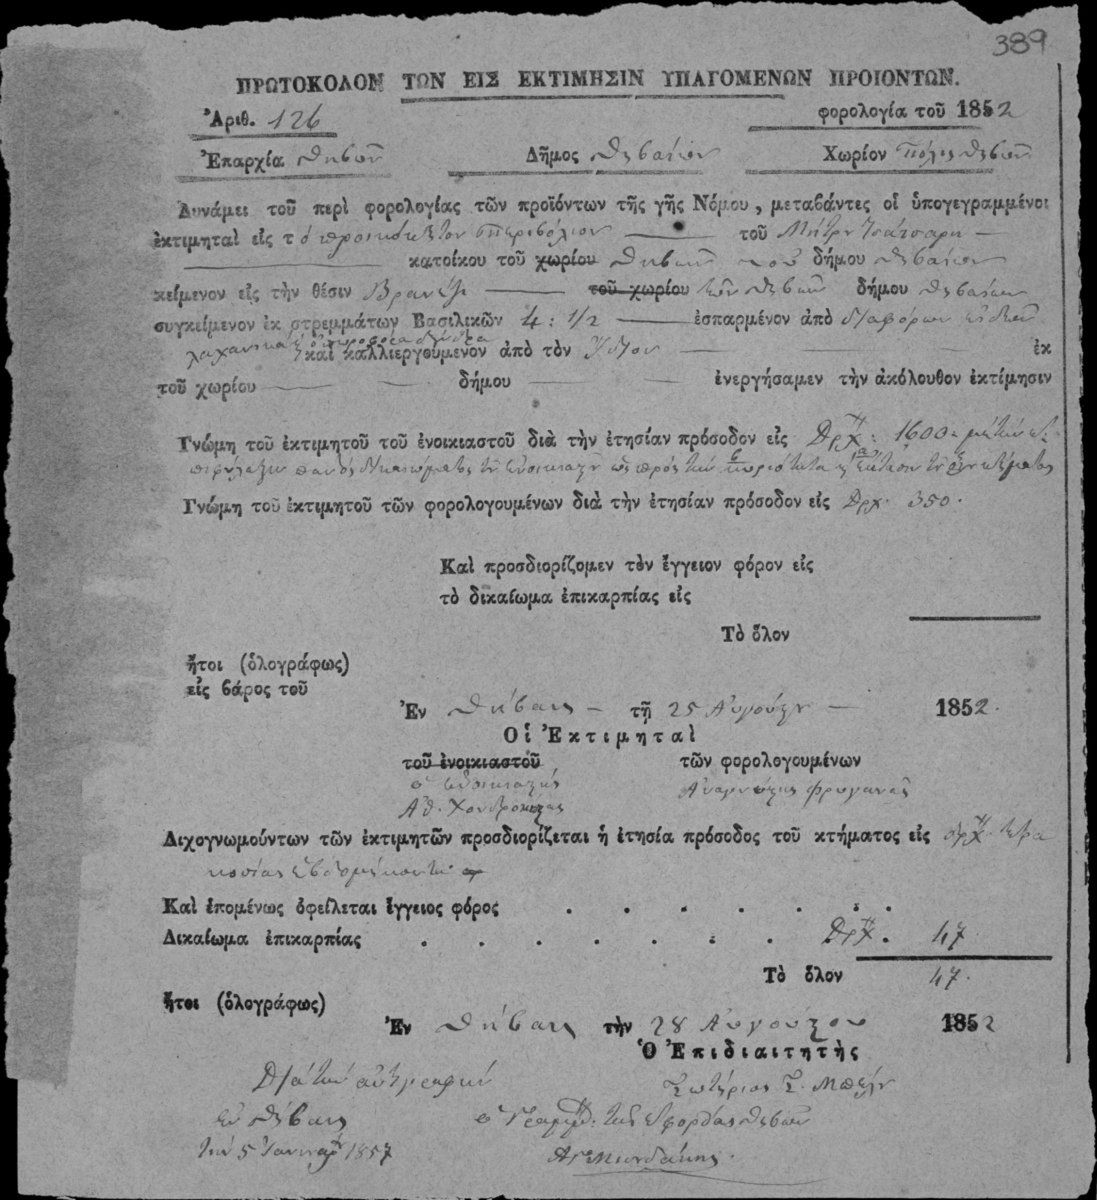 389
ΠΡΩΤΟΚΟΛΟΝ ΤΩΝ ΕΙΣ ΕΚΤΙΜΗΣΙΝ ΥΠΑΓΟΜΕΝΩΝ ΠΡΟΙΟΝΤΩΝ.
Ἀριθ. 126 φορολογία τοῦ 1852
Ἐπαρχία Θηβῶν Δῆμος Θηβαίων Χωρίον Πόλις Θηβῶν
Δυνάμει τοῦ περὶ φορολογίας τῶν προϊόντων τῆς γῆς Νόμου, μεταβάντες οἱ ὑπογεγραμμένοι
ἐκτιμηταὶ εἰς τὸ περιβόλιον τοῦ Μήτρου
κατοίκου τοῦ χωρίου Θηβῶν τοῦ δήμου Θηβαίων
κείμενον εἰς τὴν θέσιν τοῦ χωρίου τῶν Θηβῶν δήμου Θηβαίων
συγκείμενον ἐκ στρεμμάτων Βασιλικῶν 4: 1/2 ἐσπαρμένον ἀπὸ διαφόρων εἰδῶν
λαχανικὰ καὶ καλλιεργούμενον ἀπὸ τὸν ἴδιον ἐκ
τοῦ χωρίου δήμου ἐνεργήσαμεν τὴν ἀκόλουθον ἐκτίμησιν
Γνώμη τοῦ ἐκτιμητοῦ τοῦ ἐνοικιαστοῦ διὰ τὴν ἐτησίαν πρόσοδον εἰς Δρχ: 1600
παντὸς δικαιώματος ὡς πρὸς τὴν κτήματος
Γνώμη τοῦ ἐκτιμητοῦ τῶν φορολογουμένων διὰ τὴν ἐτησίαν πρόσοδον εἰς Δρχ. 350.
Καὶ προσδιορίζομεν τὸν ἔγγειον φόρον εἰς
τὸ δικαίωμα ἐπικαρπίας εἰς
Τὸ ὅλον
ἤτοι (ὁλογράφως)
εἰς βάρος τοῦ
Ἐν Θήβαις τῇ 25 Αὐγούστου 1852.
Οἱ Ἐκτιμηταὶ
τοῦ ἐνοικιαστοῦ τῶν φορολογουμένων
Ἀθ. Χονδρο Ἀναγνώστης Φρυγανᾶς
Διχογνωμούντων τῶν ἐκτιμητῶν προσδιορίζεται ἡ ἐτησία πρόσοδος τοῦ κτήματος εἰς δρχ. τετρα
κοσίας ἑβδομήκοντα
Καὶ ἑπομένως ὀφείλεται ἔγγειος φόρος . . . . . .
Δικαίωμα ἐπικαρπίας . . . . . . . . Δρχ. 47
Τὸ ὅλον 47.
ἤτοι (ὁλογράφως)
Ἐν Θήβαις τὴν 28 Αὐγούστου 1852
Ὁ Ἐπιδιαιτητὴς
Διὰ τὴν ἀντιγραφὴν Σωτήριος Σ.
ἐν Θήβαις ὁ Γραμμ: τῆς Ἐφορίας Θηβῶν
τὴν 5 Ἰανουαρ 1857